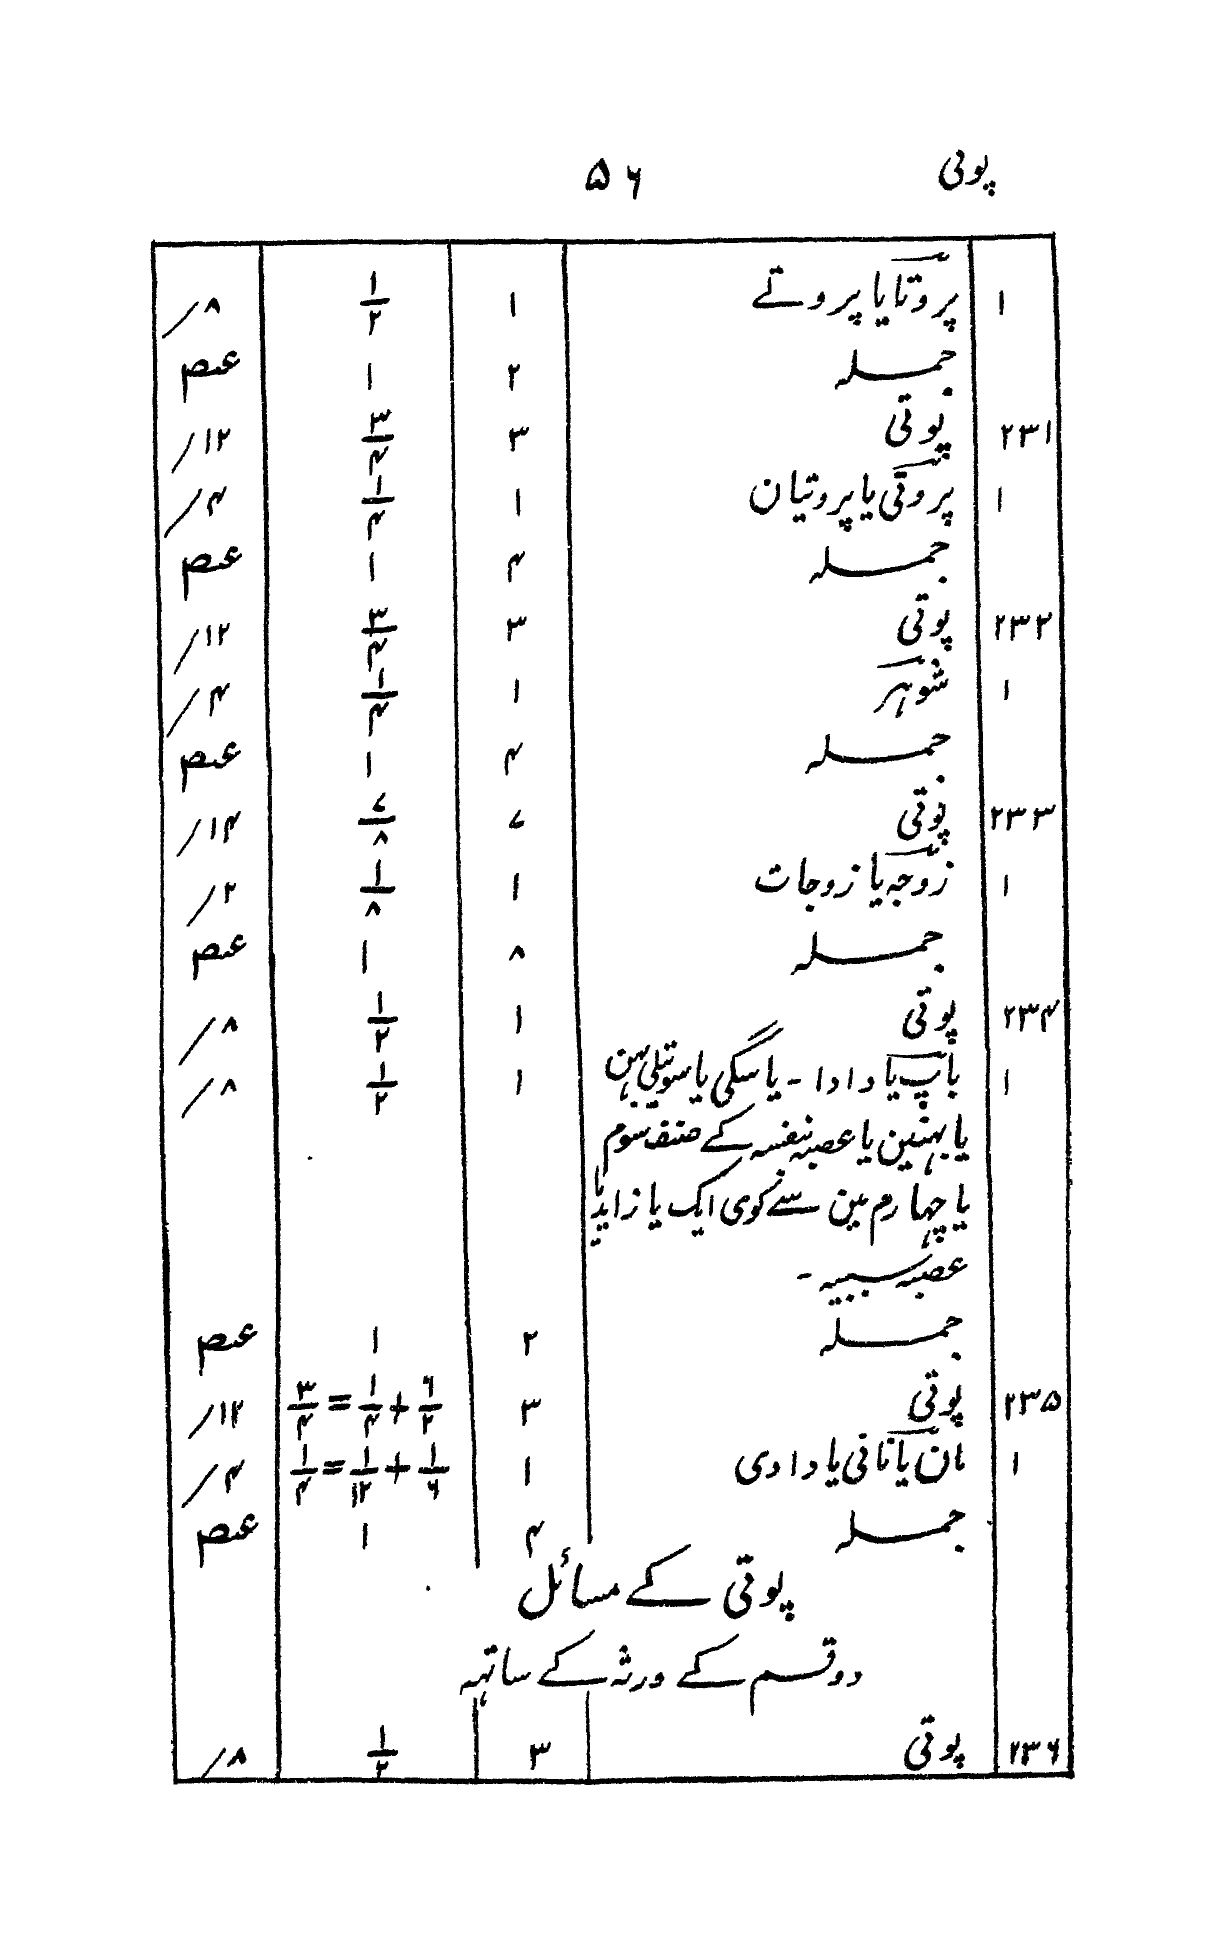 پوتی ۵۶
۱ پروتا یا پروتے ۱ ۱/۲ ۸/
جملہ ۲ ۱ عہ
۲۳۱ پوتی ۳ ۳/۴ ۱۲/
۱ پروتی یا پروتیان ۱ ۱/۴ ۴/
جملہ ۴ ۱ عہ
۲۳۲ پوتی ۳ ۳/۴ ۱۲/
۱ شوہر ۱ ۱/۴ ۴/
جملہ ۴ ۱ عہ
۲۳۳ پوتی ۷ ۷/۸ ۱۴/
۱ زوجہ یا زوجات ۱ ۱/۸ ۲/
جملہ ۸ ۱ عہ
۲۳۴ پوتی ۱ ۱/۲ ۸/
۱ باپ یا دادا - یا سگی یا سوتیلی بہن ۱ ۱/۲ ۸/
یا بہنین یا عصبہ بنفسہ کے صنف سوم
یا چہارم مین سے کوی ایک یا زاید یا
عصبہ سببیہ -
جملہ ۲ ۱ عہ
۲۳۵ پوتی ۳ ۶/۲ + ۱/۴ = ۳/۴ ۱۲/
۱ مان یا نانی یا دادی ۱ ۱/۶ + ۱/۱۲ = ۱/۴ ۴/
جملہ ۴ ۱ عہ
پوتی کے مسائل
دو قسم کے ورثہ کے ساتہہ
۲۳۶ پوتی ۳ ۱/۲ ۸/